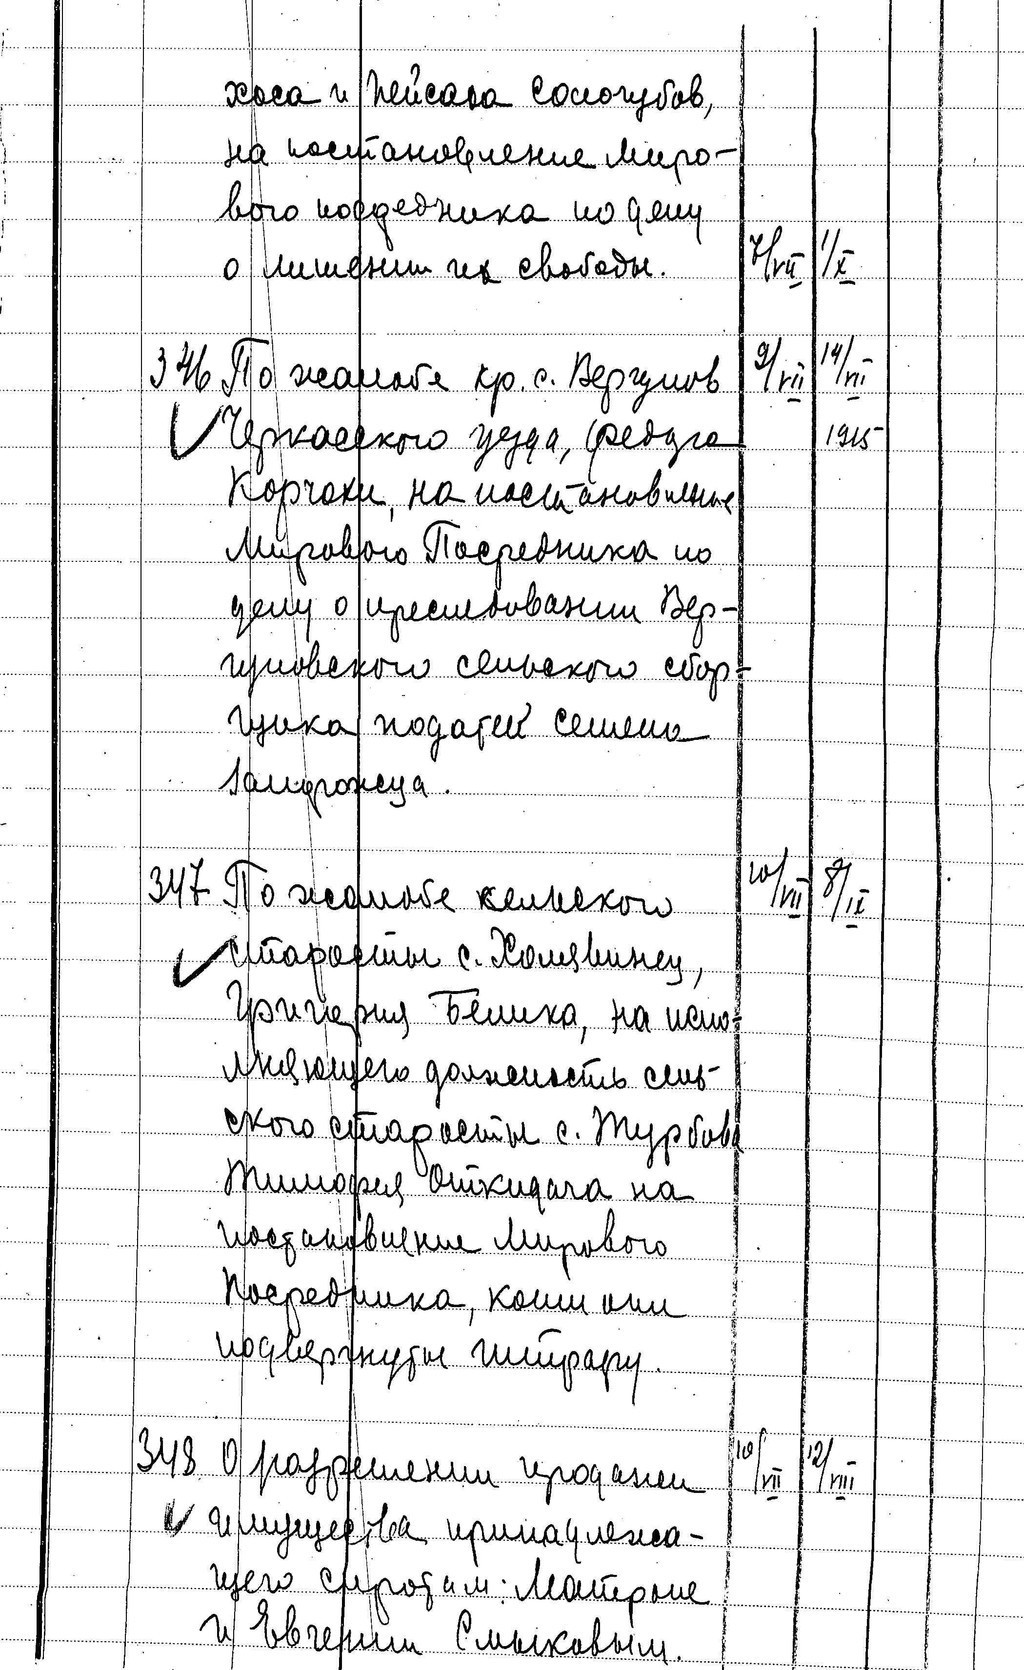 хоса и Пейсаха Сологубов,
на постановление Миро-
вого посредника по делу
о лишении их свободы. 7/VII 1/X
346 По жалобе кр. с. Вергунов 9/VII 14/VII
Черкасского уезда, Федора 1915
Корчаки, на постановление
Мирового Посредника по
делу о преследовании Вер-
гуновского сельского сбор-
щика податей Семена
347 По жалобе сельского 10/VII 8/IX
старосты с. Халявинец,
Григория Белика, на испо-
лняющего должность сель-
ского старосты с. Журбова
Тимофея Откидача на
постановление Мирового
Посредника, коим они
подвергнуты штрафу.
348 О разрешении продажи 10/VII 12/VIII
имущества принадлежа-
щего сиротам: Матроне
и Евгении Смыковым.